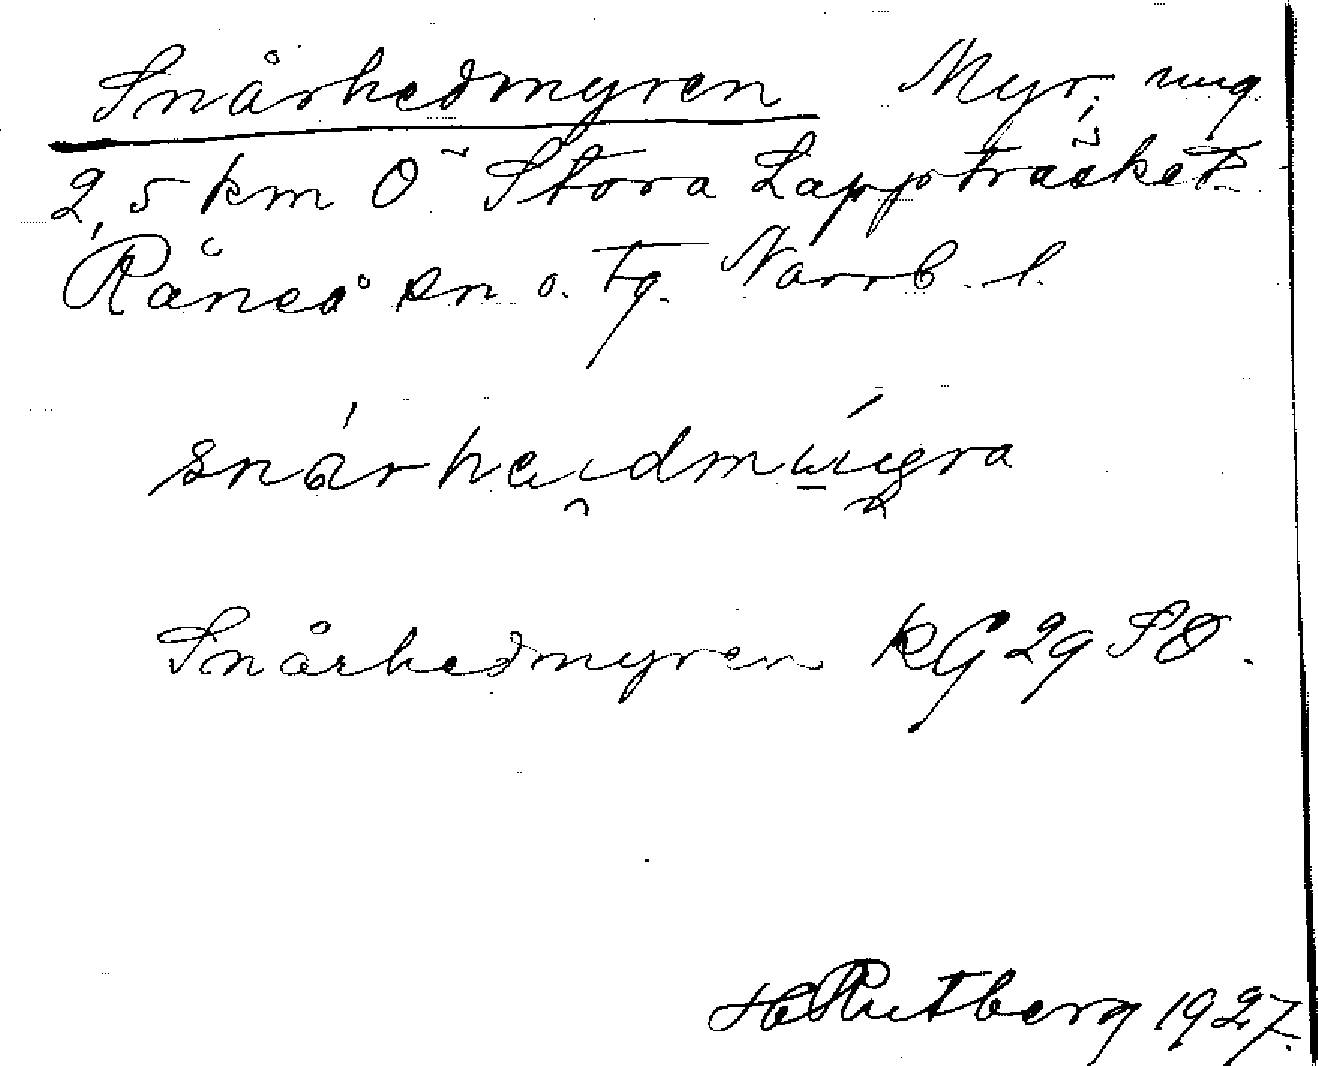 Snårhedmyren Myr, ung.
2,5 km Ö Stora Lappträsket
Råneå sn o. tg. Norrb. l.
Snårhedmyren KG 29 SO.
H Rutberg 1927.